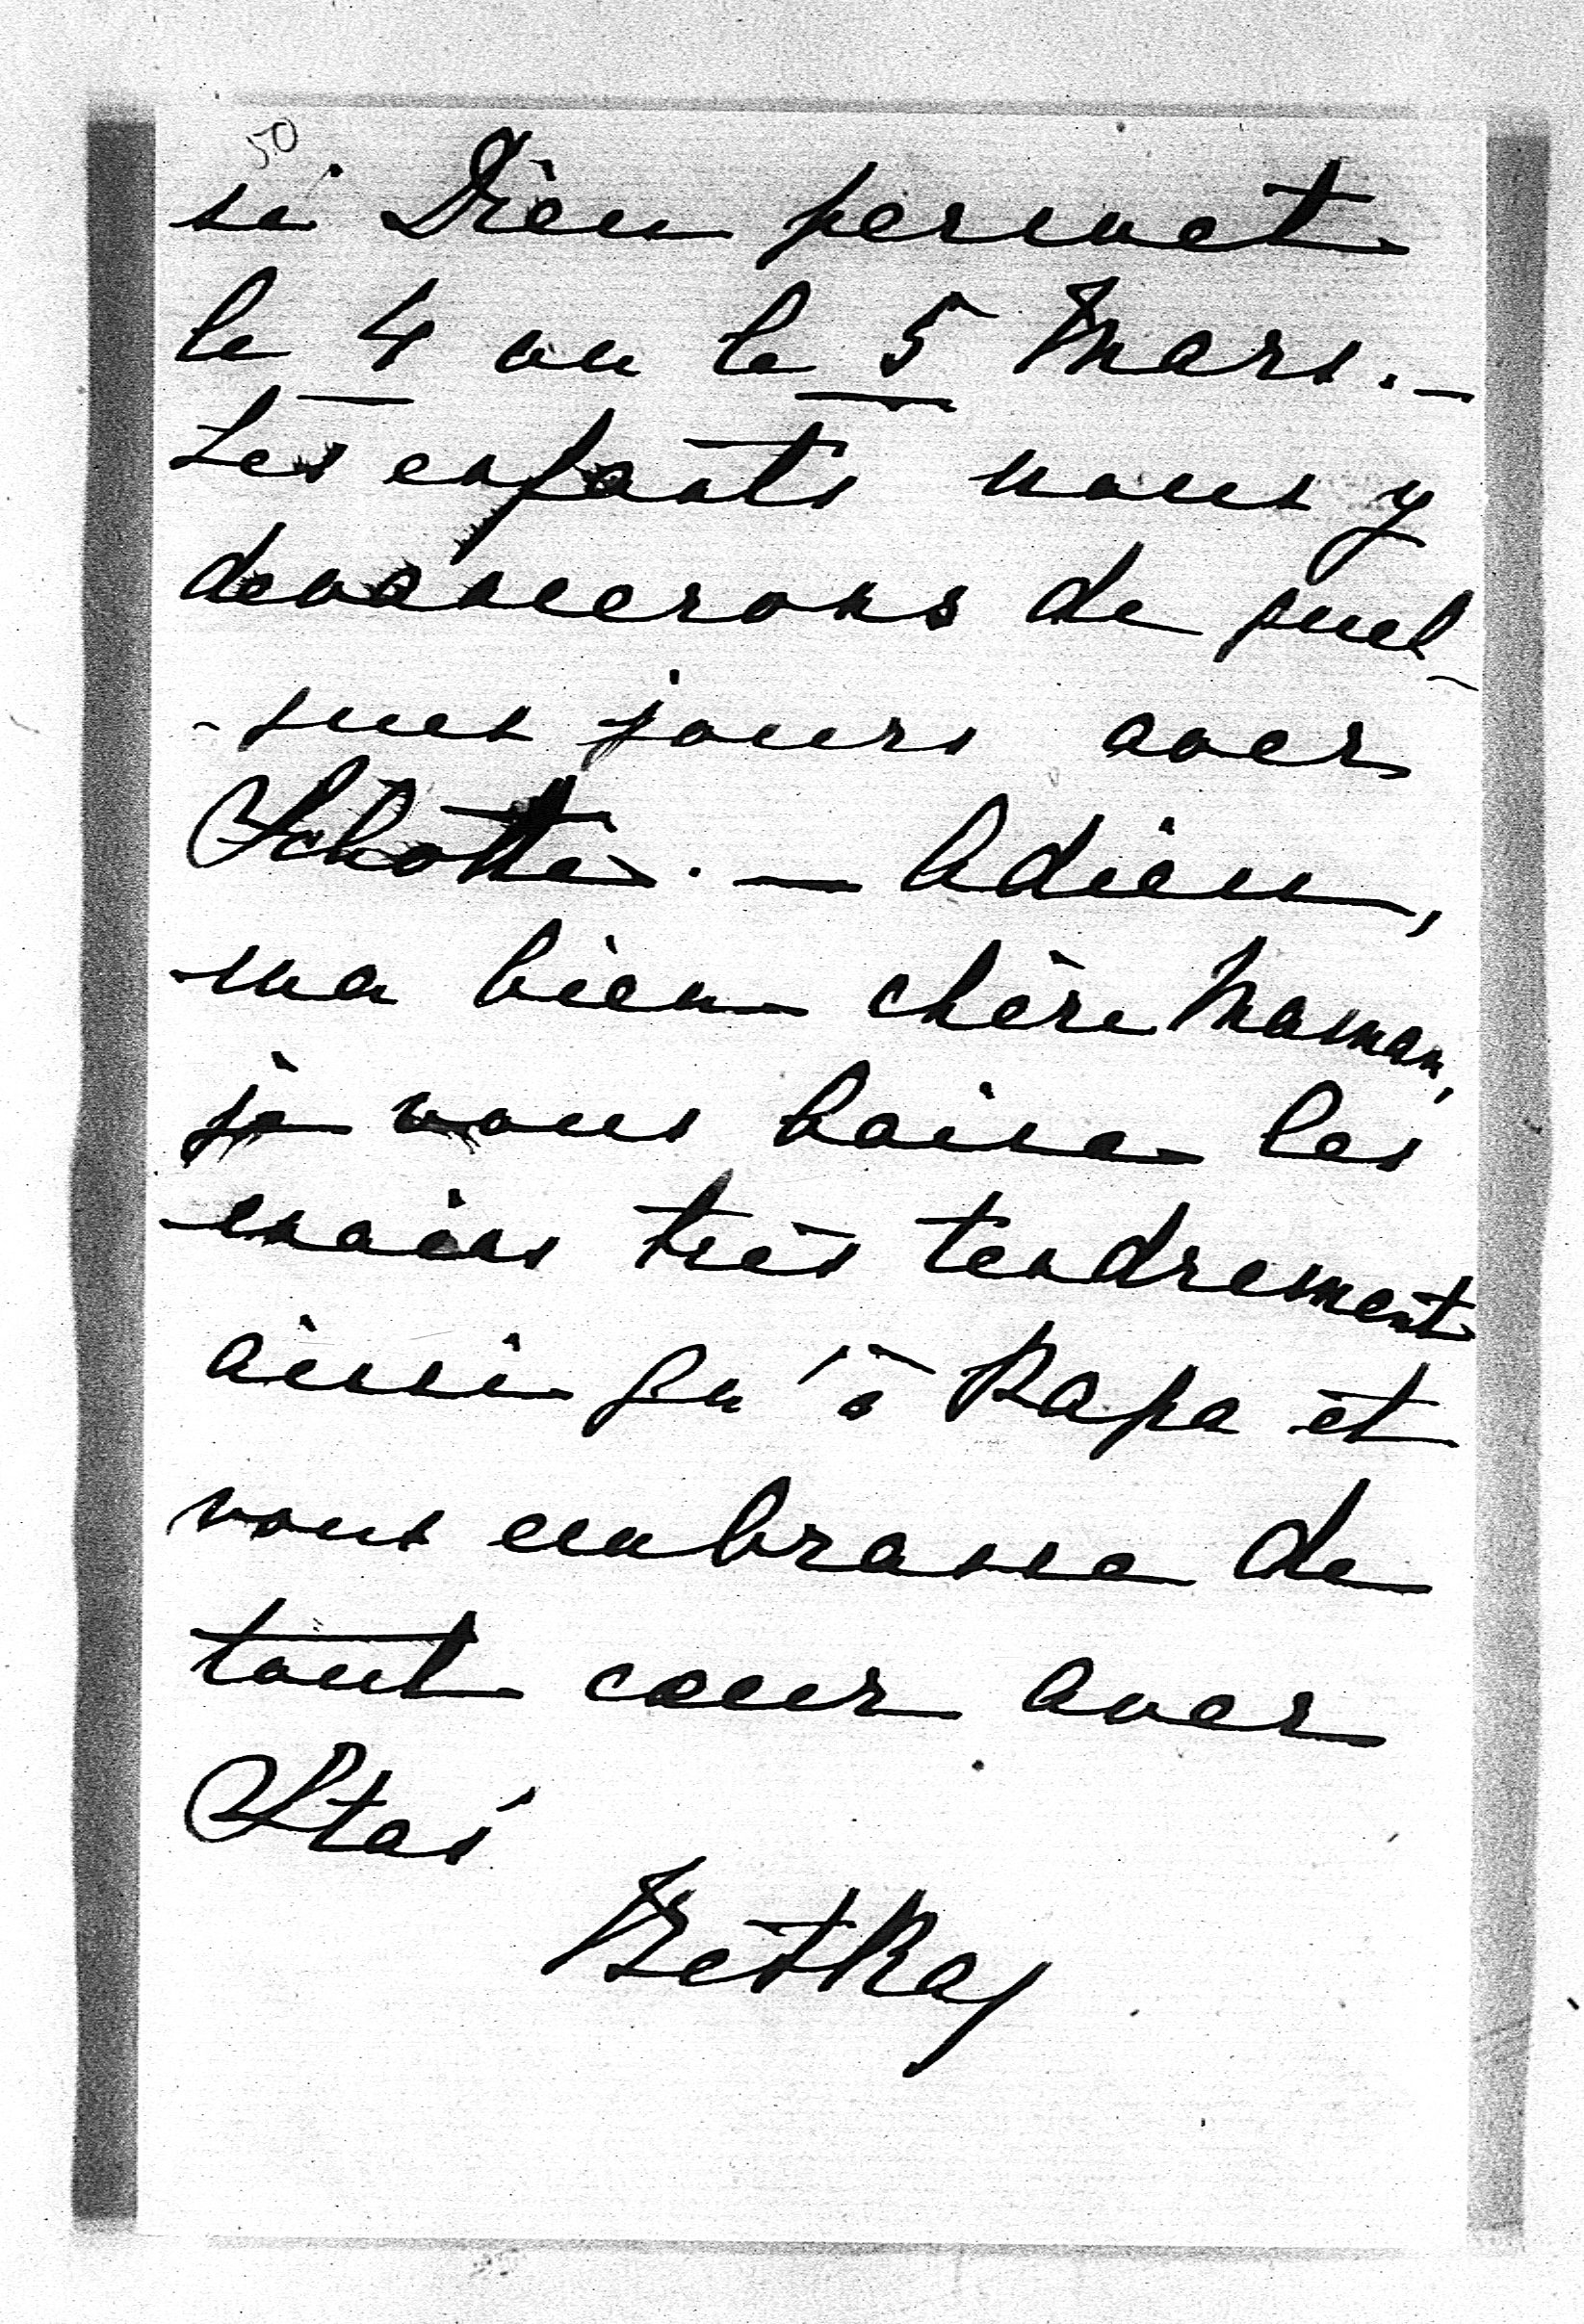 50
si Dieu permet
le 4 ou le 5 Mars. —
Les enfants nous y
devancerons de quel-
-ques jours avec
Schotte. — Adieu,
ma bien chère Maman,
je vous baise les
mains très tendrement
ainsi qu'à Papa et
vous embrasse de
tout cœur avec
Staś
Betka